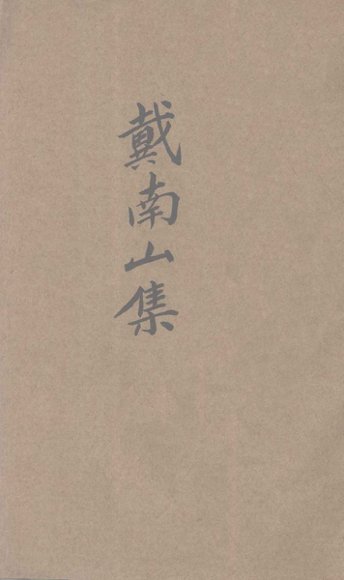 戴南山集